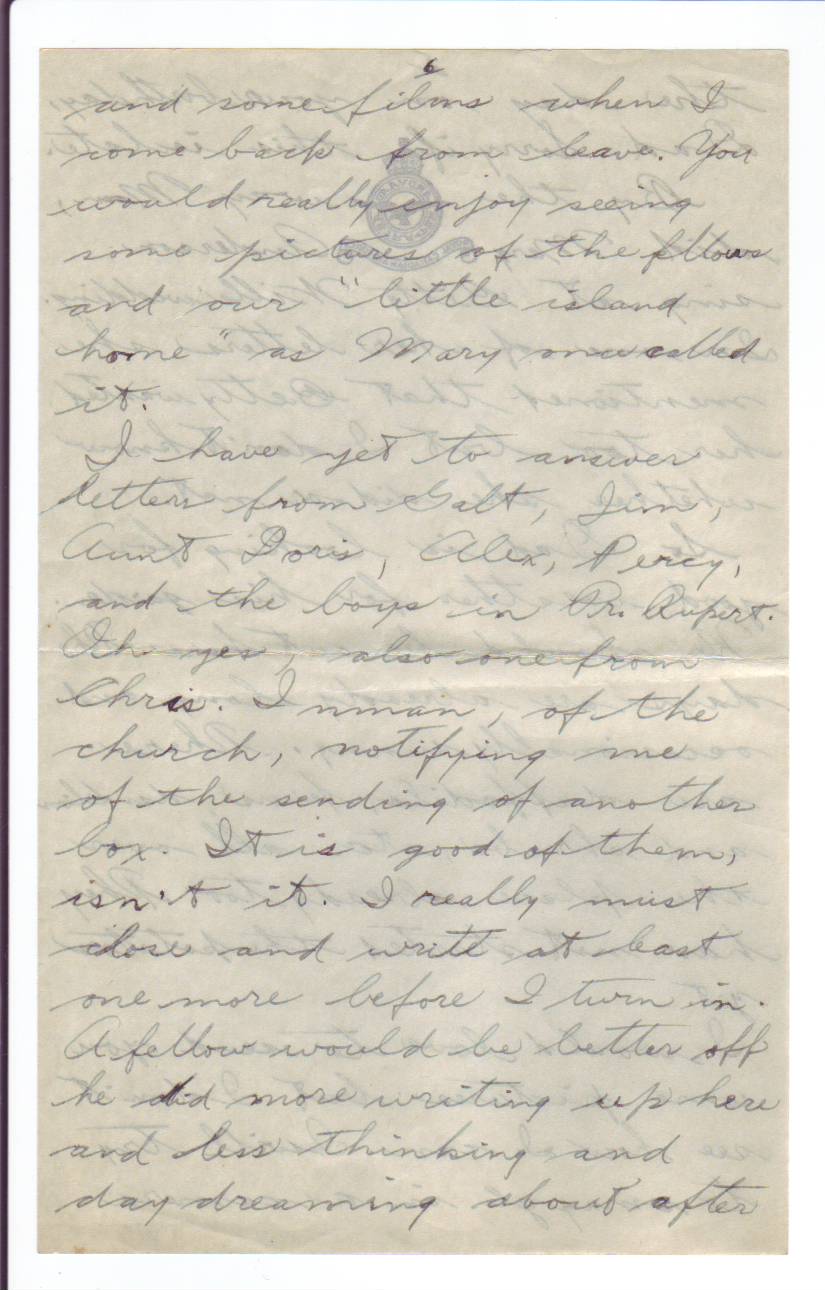 6
and some films when I
come back from leave. You
would really enjoy seeing
some pictures of the fllows
and our "little island
home" as Mary once called
it.
I have yet to answer
letters from Galt, Jim,
Aunt Doris, Alex, Percy,
and the boys in Pr. Rupert.
Oh yes, also one from
Chris. Inman, of the
church, notifying me
of the sending of another
box. It is good of them,
isn't it. I really must
close and write at least
one more before I turn in.
A fellow would be better off
he did more writing up here
and less thinking and
day dreaming about after